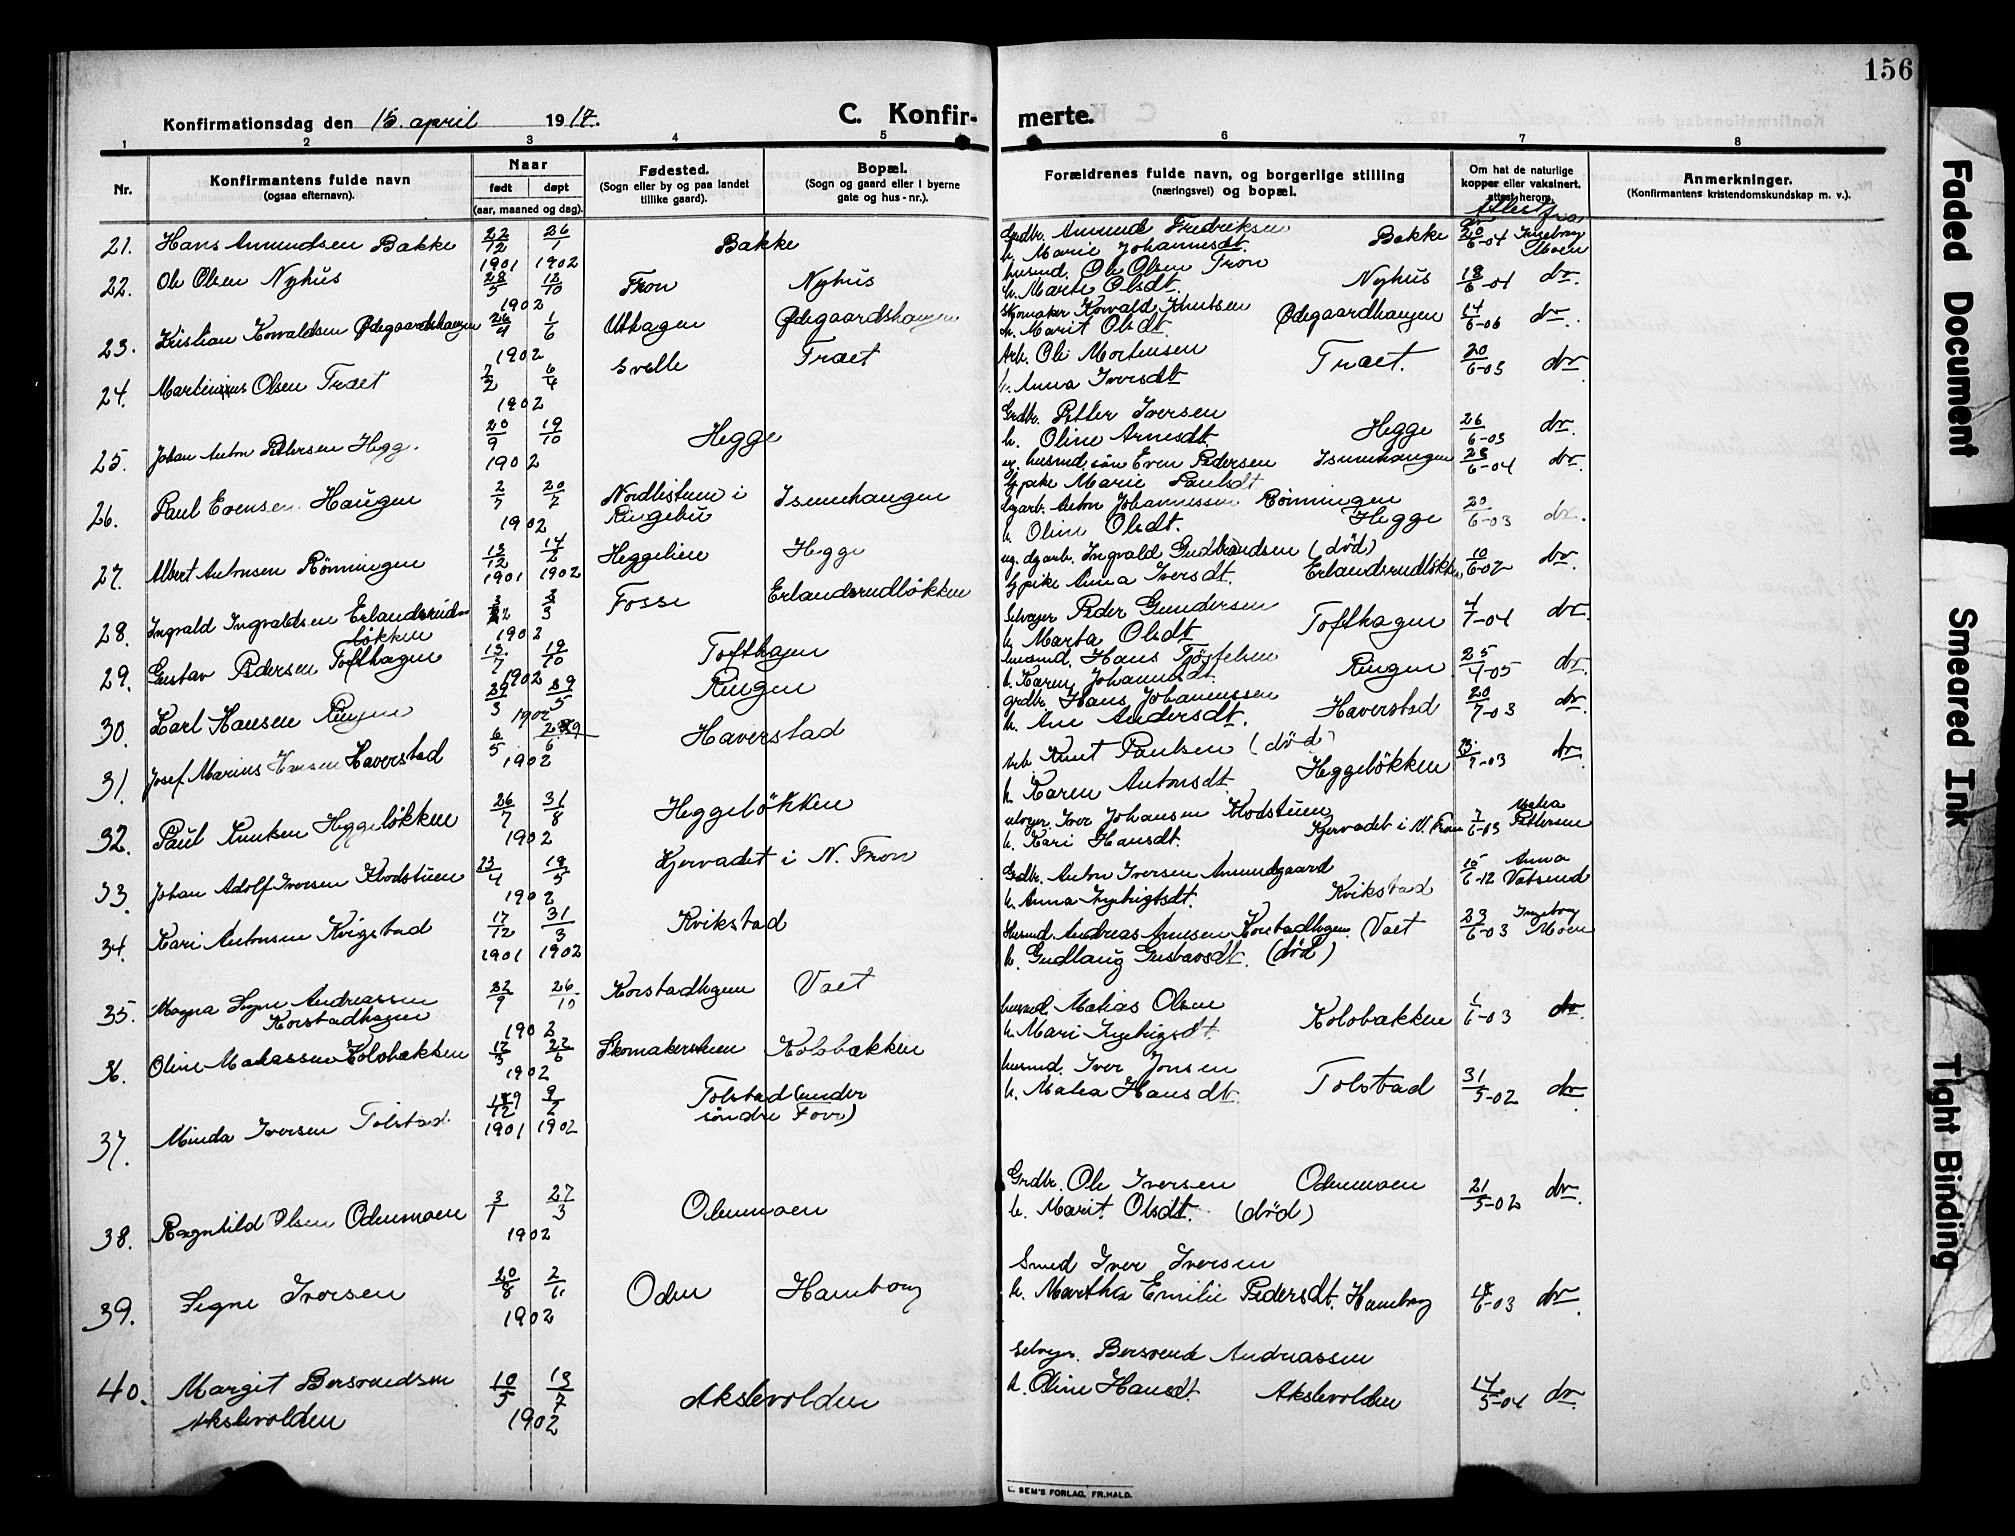 156
Konfirmationsdag den 15. april 1917.
C. Konfir-
merte.
1 2 3 4 5 6 7 8
Nr.
Konfirmantens fulde navn
(ogsaa efternavn).
Naar
født døpt
(aar, maaned og dag).
Fødested.
(Sogn eller by og paa landet
tillike gaard).
Bopæl.
(Sogn og gaard eller i byerne
gate og hus-nr.).
Forældrenes fulde navn, og borgerlige stilling
(næringsvei) og bopæl.
Om hat de naturlige
kopper eller vaksinert,
attest herom.
Anmerkninger.
(Konfirmantens kristendomskundskap m. v.).
Attest fra
21. Hans Amundsen Bakke 22/12 1901 26/1 1902 Bakke
Grdbr. Amund Fredriksen
h. Marie Johannesdt. Bakke 20/6-04 Ingeborg Moen
22. Ole Olsen Nyhus 28/5 12/10 1902 Fron Nyhus
husmd. Ole Olsen Fron
h. Marte Olsdt. Nyhus 18/6-04 do.
23. Kristian Korvaldsen Ødegaardshaugen 26/4 1/6 1902 Uthagen Ødegaardshaugen
Skomaker Korvald Knutsen
h. Marit Olsdt. Ødegaardhaugen 14/6-06 do.
24. Martinius Olsen Træet 7/2 6/4 1902 Svelle Træet
Arb. Ole Mortensen
h. Anna Iversdt Træet. 20/6-03 do.
25. Johan Anton Pettersen Hegg. 20/9 19/10 1902 Hegge
Grdbr. Petter Iversen
h. Oline Arnesdt. Hegge 26/6-03 do.
26. Paul Evensen Haugen 2/7 20/7 1902 Nordlistuen i Ringebu Isumhaugen
ug. husmd.søn Even Pedersen Isumhaugen 28/6-04 do.
G. pike Marie Paulsdt
27. Albert Antonsen Rønningen 13/12 1901 14/2 1902 Heggelien Hegge
Anton Johannessen Rønningen
h. Oline Olsdt. Hegge 20/6-03 do.
28. Ingvald Ingvaldsen Erlandsrudløkken 3/3 1902 Fosse Erlandsrudløkken
ug. dgarb. Ingvald Gudbrandsen (død)
G. pike Anna Iversdt. Erlandsrudløkken 10/6-02 do.
29. Gustav Pedersen Tofthagen 13/7 19/10 1902 Tofthagen
Selveier Peder Gundersen
h. Marta Olsdt Tofthagen 4/7-04 do.
30. Karl Hansen Ringen 29/3 29/5 1902 Ringen
husmd. Hans
h. Karen Johannesdt. Ringen 25/4-05 do.
31. Josef Marius Hansen Haverstad 6/5 29/6 1902 Haverstad
grdbr. Hans Johannessen
h. Ane Andersdt. Haverstad 20/7-03 do.
32. Paul Knutsen Heggeløkken 26/7 31/8 1902 Heggeløkken
Arb. Knut Paulsen (død)
h. Karen Antonsdt. Heggeløkken 13/7-03 do.
33. Johan Adolf Iversen Klodstuen 23/4 19/5 1902 Kjervadet i N. Fron
Iver Johansen Klodstuen
h. Kari Hansdt. Kjervadet i N. Fron 7/6-03 Pettersen
34. Kari Antonsen Kvigstad 17/12 1901 31/3 1902 Kvikstad
Grdbr. Anton Iversen Amundgaard
h. Anna Ingebrigtsdt. Kvikstad 15/6-12 Anna Vatsend
35. Magna Signe Andreassen Korstadhagen 22/9 26/10 1902 Korstadhagen Vaet
Husmd Andreas Arnesen Korstadhagen (Vaet
h. Gudlaug Gustavsdt. (død) 23/6-03 Ingeborg Moen
36. Oline Matiassen Kolobakken 12/3 22/6 1902 Skomakerstuen Kolobakken
husmd. Matias Olsen
h. Mari Ingebrigsdt. Kolobakken 1/6-03 do.
37. Minda Iversen Tolstad 19/12 1901 9/2 1902 Tolstad (under søndre Forr)
husmd. Iver Jonsen
h. Matea Hansdt. Tolstad 31/5-02 do.
38. Ragnhild Olsen Odenmoen 3/1 27/3 1902 Odenmoen
Grdbr. Ole Iversen Odenmoen
h. Marit Olsdt. (død) 21/5-02 do.
39. Signe Iversen 20/8 2/11 1902 Oden Hamborg
Smed Iver Iversen
h. Martha Emilie Pedersdt. Hamborg 18/6-03 do.
40. Margit Bersvendsen Akslevolden 10/5 13/7 1902 Akslevolden
Selveger. Bersvend Andreassen
h. Oline Hansdt. Akslevolden 17/5-04 do.
E. SEM'S FORLAG, FR.HALD.
Faded Document
Smeared Ink
Tight Binding